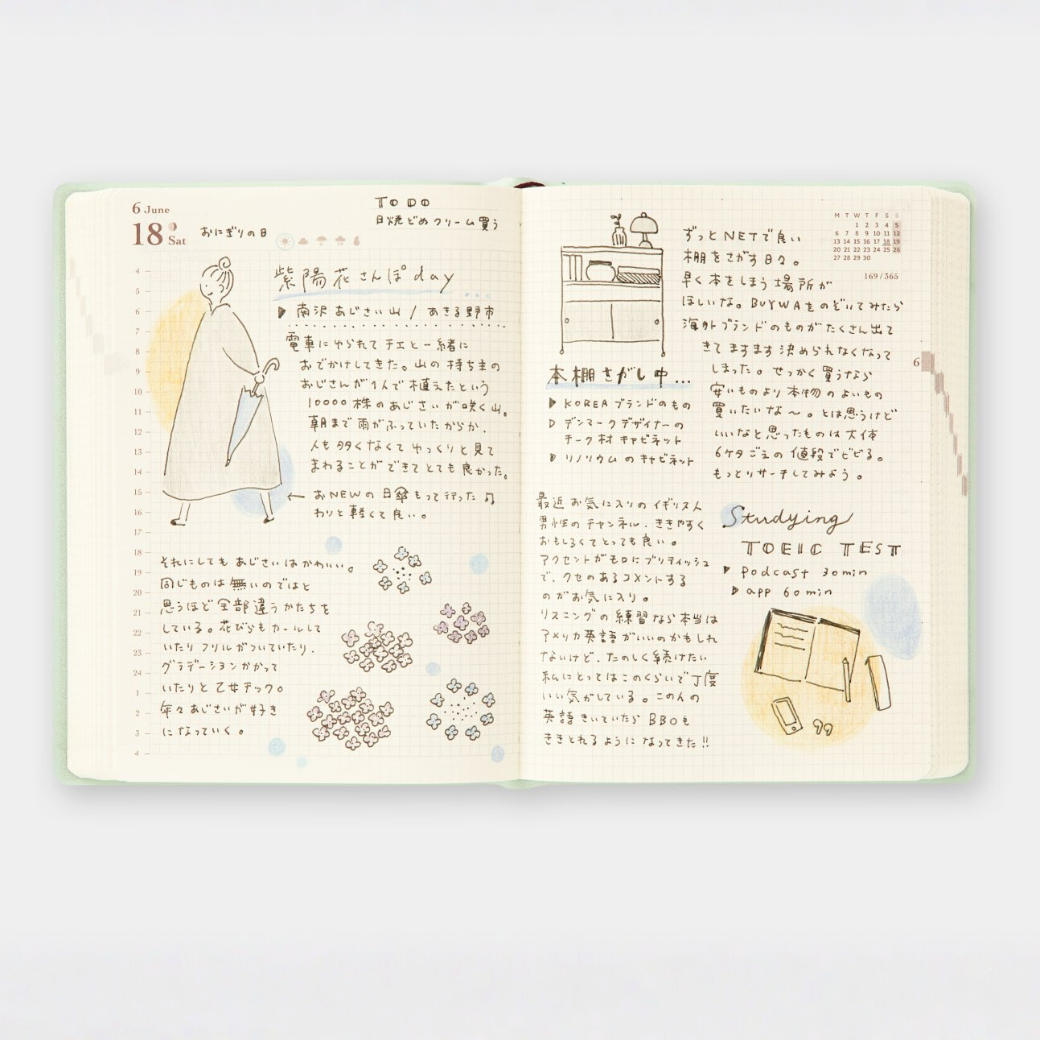 6 June
18 Sat
おにぎりの日
TO DO
日焼どめクリーム買う
紫陽花さんぽday
南沢あじさい山 / あきる野市
電車にゆられてチエと一緒に
おでかけしてきた。山の持ち主の
おじさんが1人で植えたという
10000株のあじさいが咲く山。
朝まで雨がふっていたからか、
人も多くなくてゆっくりと見て
まわることができてとても良かった。
← おNEWの日傘もって行った♫
わりと軽くて良い。
それにしてもあじさいはかわいい。
同じものは無いのではと
思うほど全部違うかたちを
している。花びらもカールして
いたりフリルがついていたり、
グラデーションかかって
いたりと乙女チック。
年々あじさいが好き
になっていく。
4
5
6
7
8
9
10
11
12
13
14
15
16
17
18
19
20
21
22
23
24
1
2
3
4
本棚さがし中...
KOREAブランドのもの
デンマークデザイナーの
チーク材キャビネット
リノリウムのキャビネット
ずっとNETで良い
棚をさがす日々。
早く本をしまう場所が
ほしいな。BUYWAをのぞいてみたら
海外ブランドのものがたくさん出て
きてますます決められなくなって
しまった。せっかく買うなら
安いものより本物のよいもの
買いたいな〜。とは思うけど
いいなと思ったものは大体
6ケタごえの値段でビビる。
もっとリサーチしてみよう。
M T W T F S S
1 2 3 4 5
6 7 8 9 10 11 12
13 14 15 16 17 18 19
20 21 22 23 24 25 26
27 28 29 30
169/365
6
最近お気に入りのイギリス人
男性のチャンネル、ききやすく
おもしろくてとっても良い。
アクセントがもろにブリティッシュ
で、クセのあるコメントする
のがお気に入り。
リスニングの練習なら本当は
アメリカ英語がいいのかもしれ
ないけど、たのしく続けたい
私にとってはこのくらいで丁度
いい気がしている。この人の
英語きいていたらBBCも
ききとれるようになってきた!!
Studying
TOEIC TEST
podcast 30min
app 60min